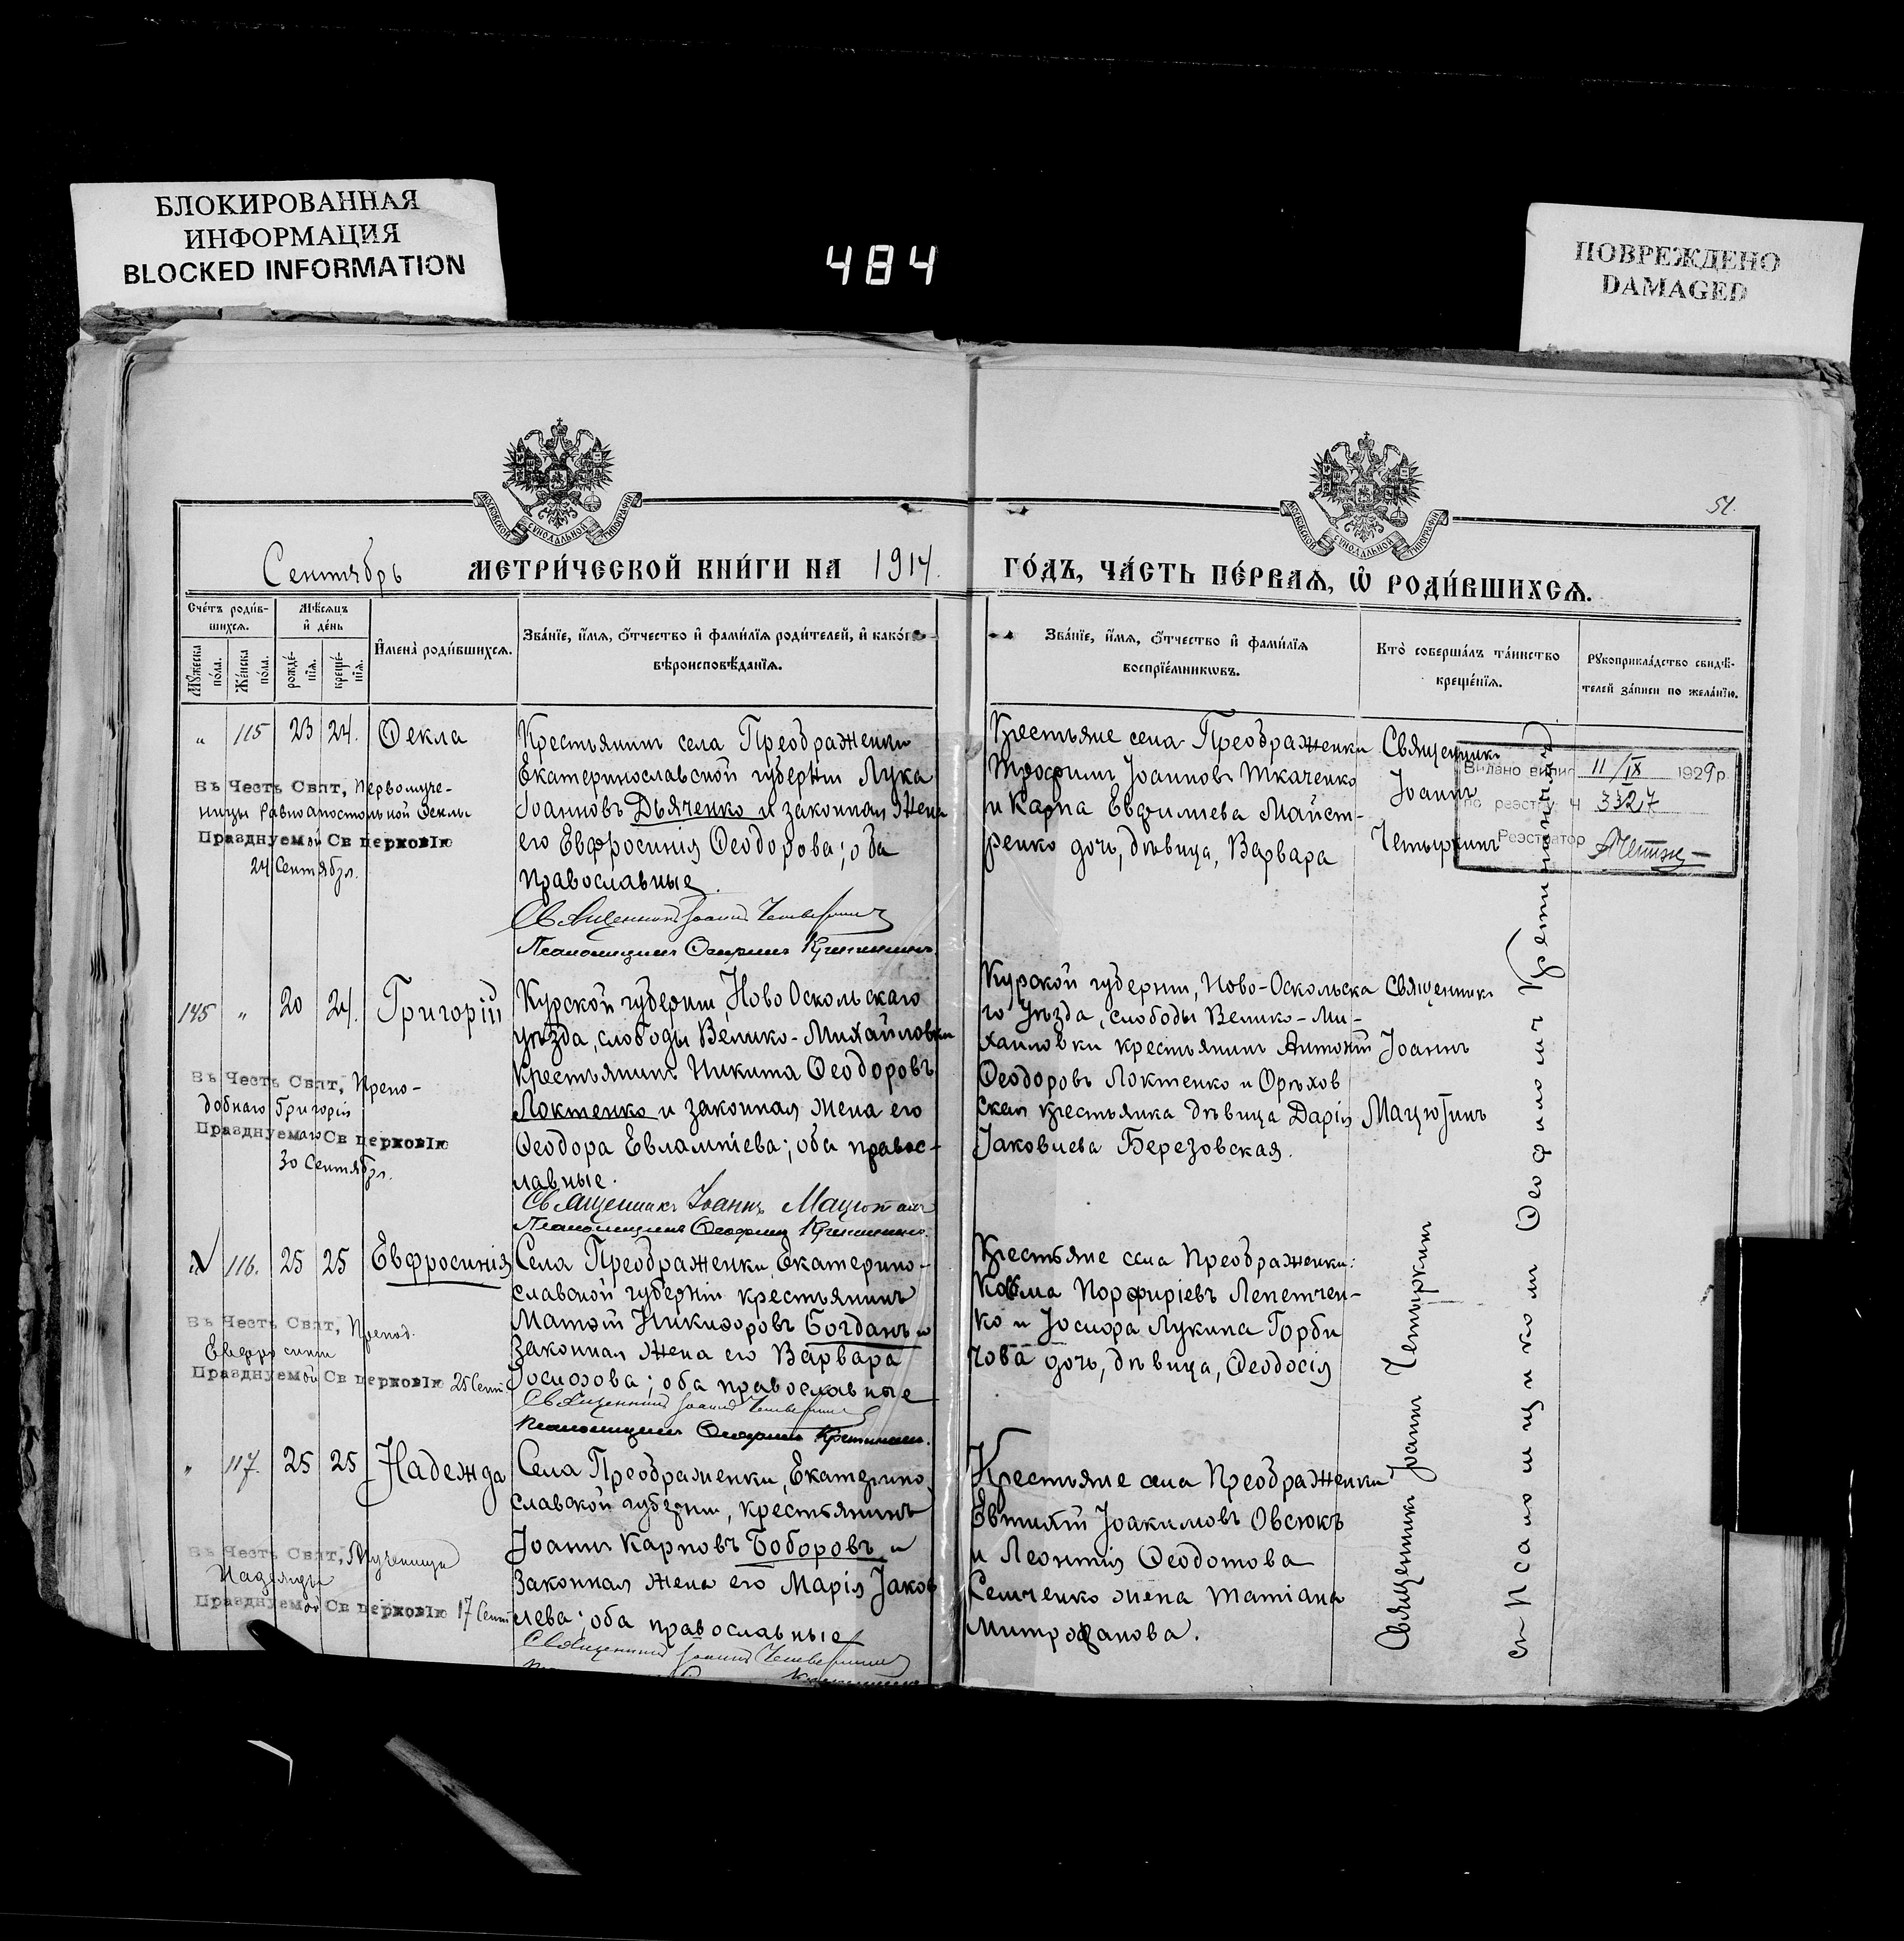 БЛОКИРОВАННАЯ
ИНФОРМАЦИЯ
BLOCKED INFORMATION
484
ПОВРЕЖДЕНО
DAMAGED
51.
МОСКОВСКОЙ СѴНОДАЛЬНОЙ ТИПОГРАФІИ
МОСКОВСКОЙ СѴНОДАЛЬНОЙ ТИПОГРАФІИ
Сентябрь МЕТРИ́ЧЕСКОЙ КНИ́ГИ НА 1914.
ГО́ДЪ, ЧА́СТЬ ПЕ́РВАѦ, Ѽ РОДИ́ВШИХСѦ.
Сче́тъ роди́в-
шихсѧ.
Мꙋ́жеска
по́ла.
Же́нска
по́ла.
Мѣ́сѧцъ
и҆ де́нь
рожде́-
нїѧ.
креще́-
нїѧ.
И҆мена̀ роди́вшихсѧ.
Зва́нїе, и҆́мѧ, ѻ҆́тчество и҆ фами́лїѧ роди́телей, и҆ како́гѡ
вѣроисповѣ́данїѧ.
Зва́нїе, и҆́мѧ, ѻ҆́тчество и҆ фами́лїѧ
воспрїе́мникѡвъ.
Кто̀ соверша́лъ та́инство
креще́нїѧ.
Рꙋкоприкла́дство свидѣ́-
телей за́писи по жела́нїю.
„ 115 23 24. Ѳекла
Въ Честь Свят, Первомуче-
ницы Равноапостольной Ѳеклы
Празднуемой Св церковІю
24 Сентября.
Крестьянинъ села Преображенки
Екатеринославской губерніи Лука
Іоанновъ Дьяченко и законная жена
его Евфросинія Ѳеодорова; оба
православные.
Священникъ Іоаннъ
Псаломщикъ
Крестьяне села Преображенки
Трофимъ Іоанновъ Ткаченко
и Карпа Евфиміева Майст-
ренко дочь, дѣвица, Варвара
Священникъ
Іоаннъ
Четыркинъ
Видано випис 11/IX 1929 р.
по реэстру Ч 3327
Реэстратор
145 „ 20 24. Григорій
Въ Честь Свят, Препо-
добнаго Григорія
Празднуемаго Св церковІю
30 Сентября.
Курской губерніи, Ново Оскольскаго
уѣзда, слободы Велико-Михайловки
крестьянинъ Никита Ѳеодоровъ
Локтенко и законная жена его
Ѳеодора Евлампіева; оба правос-
лавные.
Священникъ Іоаннъ Мацютинъ
Псаломщикъ
Курской губерніи, Ново-Оскольска
го Уѣзда, слободы Велико-Ми-
хайловки крестьянинъ Антоній
Ѳеодоровъ Локтенко и Орѣхов
ская крестьянка дѣвица Дарія
Іаковлева Березовская.
Священникъ
Іоаннъ
Мацютинъ
„ 116. 25 25 Евфросинія
Въ Честь Свят, Препод.
Евфросиніи
Празднуемой Св церковІю 25 Сент
Села Преображенки, Екатерино-
славской губерніи крестьянинъ
Матѳій Никифоровъ Богданъ и
законная жена его Варвара
Іосифова; оба православные
Священникъ Іоаннъ
Псаломщикъ
Крестьяне села Преображенки:
Козма Порфиріевъ Лепетчен-
ко и Іосифа Лукина Горба
чова дочь, дѣвица, Ѳеодосія
„ 117. 25 25 Надежда
Въ Честь Свят, Мученицы
Надежды
Празднуемой Св церковІю 17 Сент
Села Преображенки, Екатерино
славской губерніи, крестьянинъ
Іоаннъ Карповъ Боборовъ и
законная жена его Марія Іаков
лева; оба православные
Священникъ Іоаннъ
Крестьяне села Преображенки
Евтихій Іоакимовъ Овсюкъ
и Леонтія Ѳеодотова
Семченко жена Татіана
Митрофанова.
Священникъ Іоаннъ Четыркинъ
съ Псаломщикомъ